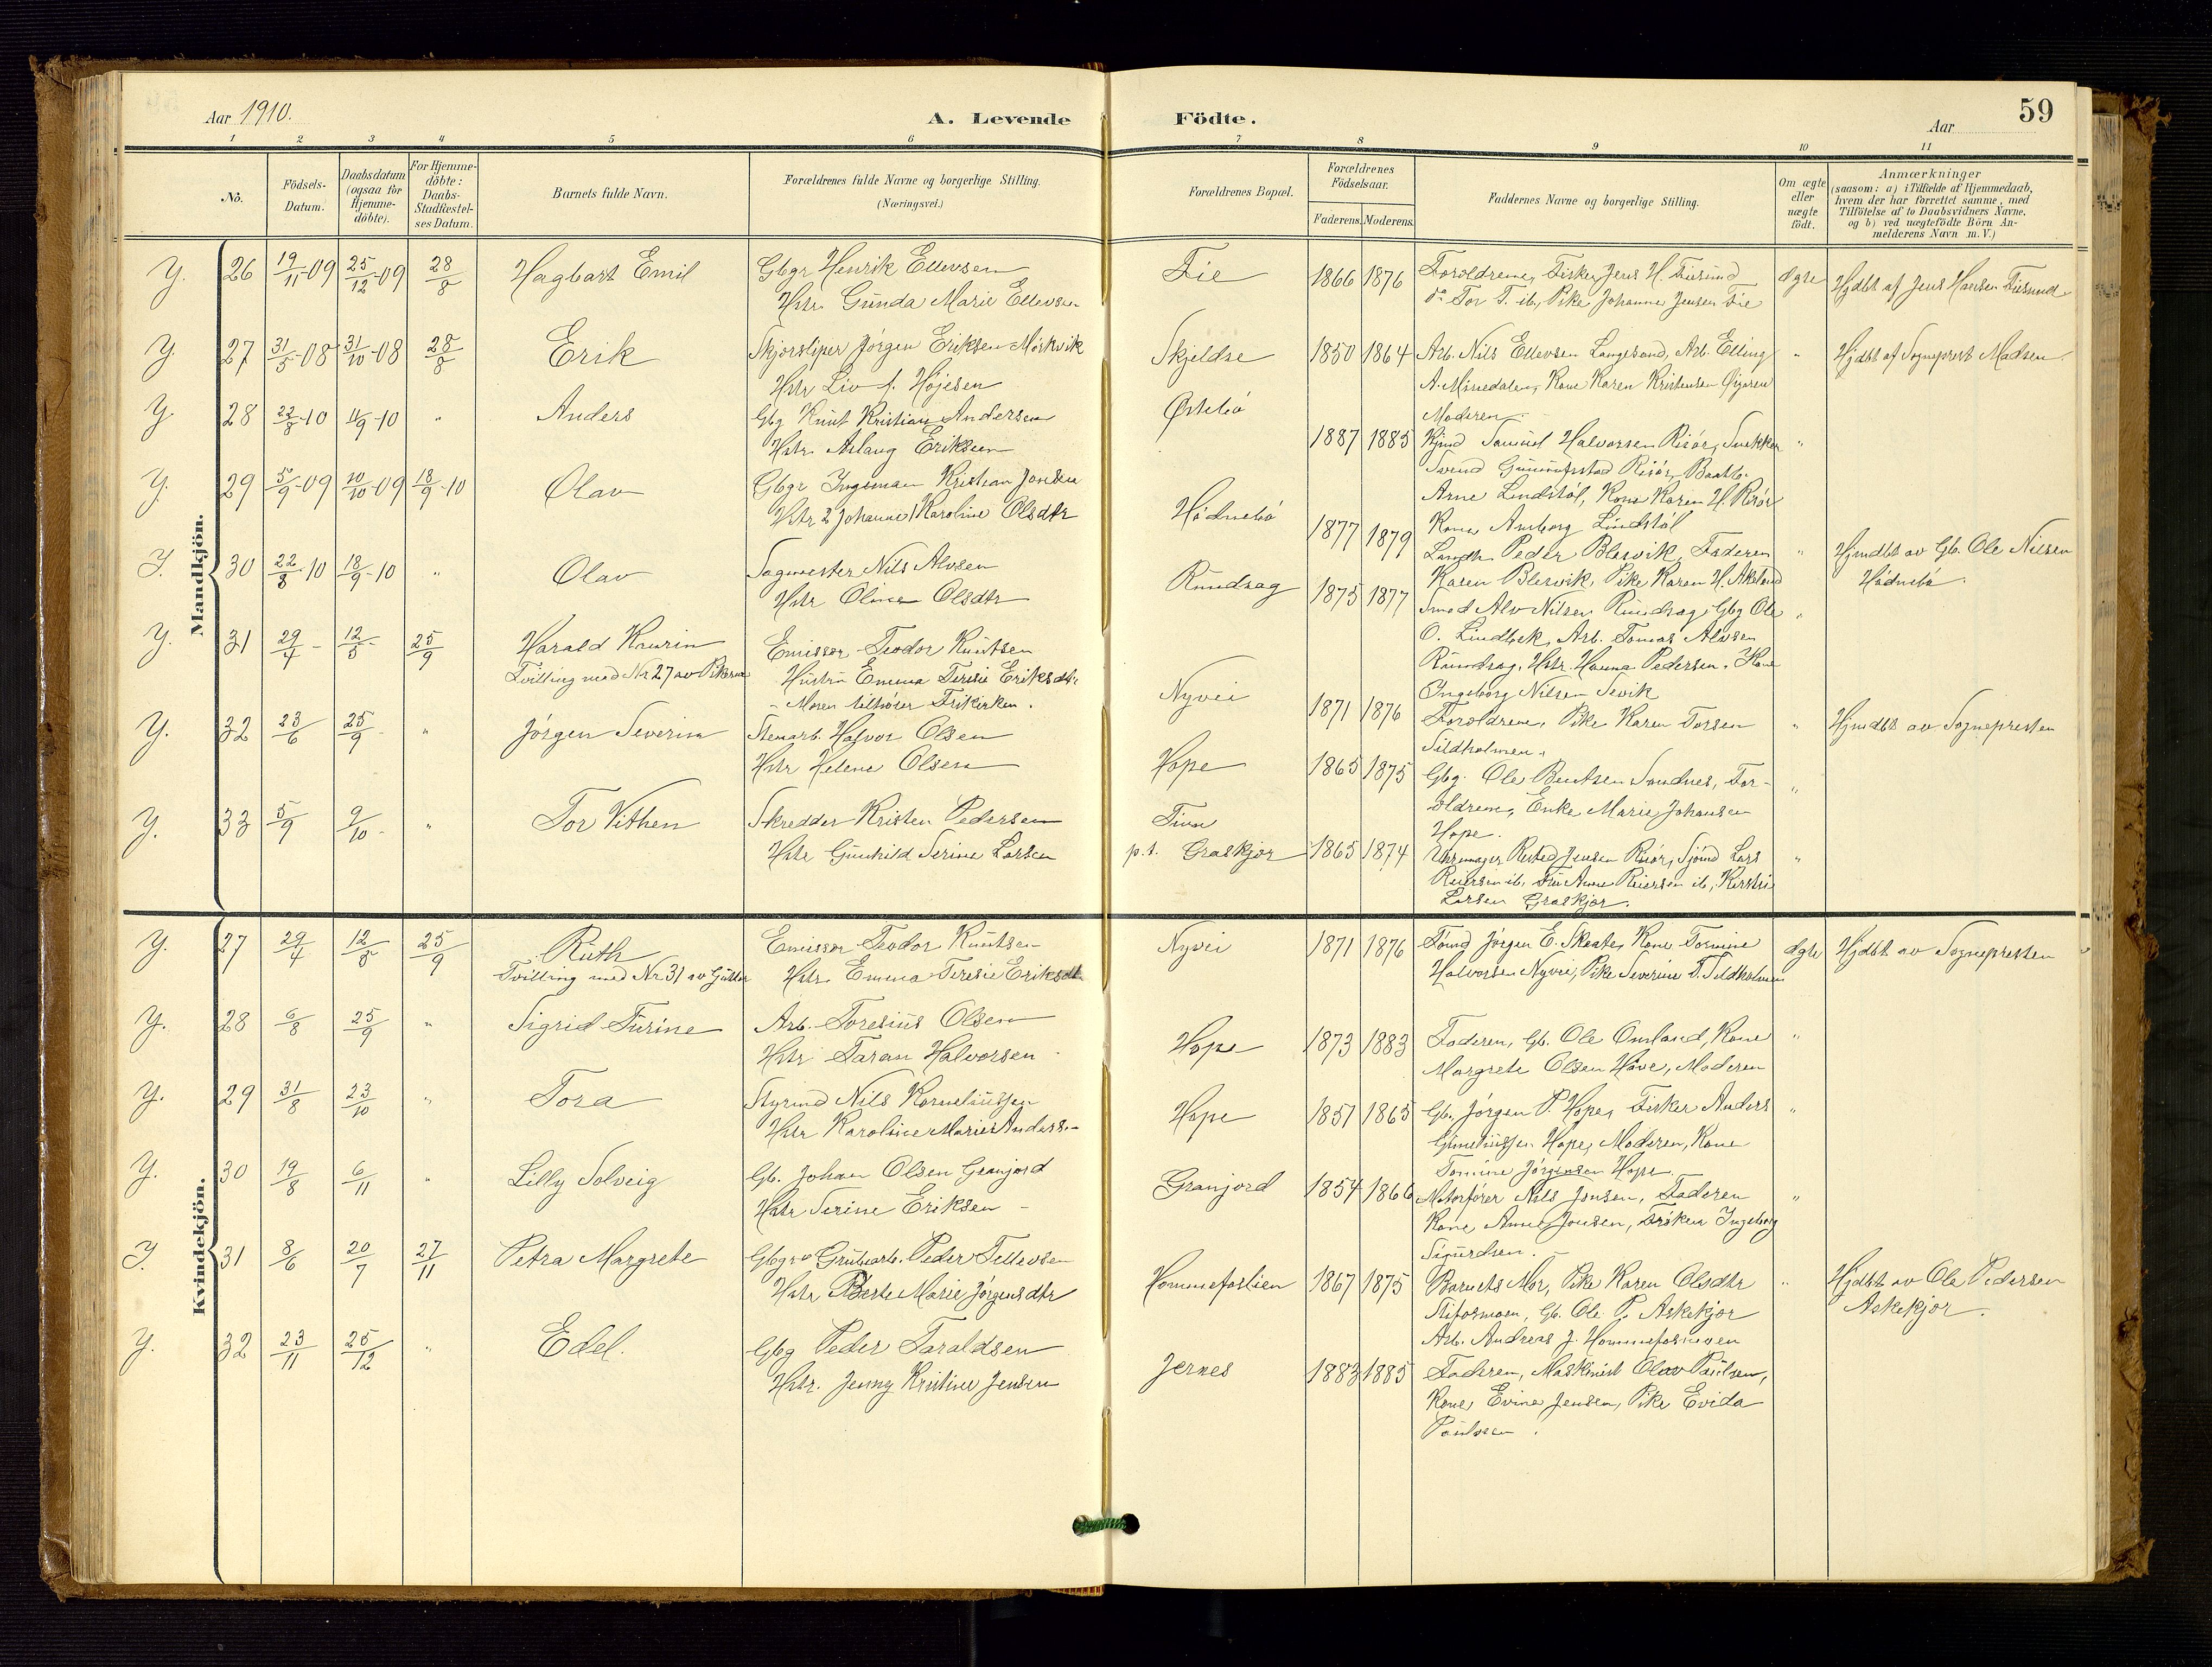 Aar 1910.
A. Levende Födte.
Aar
59
1 2 3 4 5 6 7 8 9 10 11
No.
Födsels-
Datum.
Daabsdatum
(ogsaa for
Hjemme-
döbte).
For Hjemme-
döbte:
Daabs-
Stadfæstel-
ses Datum.
Barnets fulde Navn.
Forældrenes fulde Navne og borgerlige Stilling.
(Næringsvei.)
Forældrenes Bopæl.
Forældrenes
Födselsaar.
Faderens. Moderens.
Faddernes Navne og borgerlige Stilling.
Om ægte
eller
uægte
födt.
Anmærkninger
(saasom: a) i Tilfælde af Hjemmedaab,
hvem der har forrettet samme, med
Tilföielse af to Daabsvidners Navne,
og b) ved uægtefödte Börn An-
melderens Navn m. V.)
Mandkjön.
Y. 26 19/11-09 25/12-09 28/8 Hagbart Emil
Gbgr Henrik Ellevsen
Hstr. Gunda Marie Ellevsen
Fie 1866 1876
Foroldrene, Fisker Jens H. Fiesund
do Tor T. ib, Pike Johanne Jensen Fie
Ægte
Hjdbt af Jens Hansen Fiesund
Y. 27 31/5-08 31/10-08 28/8 Erik
Skjørsliper Jørgen Eriksen Mørkvik
Hstr Liv f. Højesen
Skjeldse 1850 1864
Arb. Nils Ellevsen Langesand, Arb. Elling
A. Minedalen, Kone Karen Kristensen
Moderen
"
Hjdbt af Sogneprest Madsen.
Y. 28 22/8-10 4/9-10 " Anders
Gbg Knut Kristian Andersen
Hstr. Aslaug Eriksen
Østebø 1887 1885
Kjmd Samuel Halvorsen Risør, Snekker
Svend Risør, Baatb.
Arne Lindstøl, Kone Karen H. Risør
Kone Amborg Lindstøl
"
Y. 29 5/9-09 10/10-09 18/9-10 Olav
Gbgr Ingeman Kristian Jonsen
Hstr Johanne Karoline Olsdtr
Hødnebø 1877 1879
Landh. Peder Blesvik, Faderen
Karen Blesvik, Pike Karen H. Akeland
"
Hjmdbt av Gb. Ole Nilsen
Hødnebø.
Y. 30 22/8-10 18/9-10 " Olav
Sagmester Nils Alvsen
Hstr Oline Olsdtr
Rundsag 1875 1877
Smed Alv Nilsen Rundsag, Gbg Ole
O. Lindbek, Arb. Tomas Alvsen
Rundsag, Hstr. Hanna Pedersen, Kone
Ingeborg Nilsen Sevik
"
Y. 31 29/4- 12/5- 25/9 Harald Kaurin
Tvilling med Nr 27 av Pikerne
Emissær Teodor Knutsen
Hustru Emma Teresie Eriksdtr
- Moren tilhører Frikirken.
Nyvei 1871 1876
Foroldrene, Pike Karen Torsen
Sildholmen.
"
Hjmdbt av Sognepresten
Y. 32 23/6 25/9- " Jørgen Severin
Stenarb. Halvor Olsen
Hstr Helene Olsen
Hope 1865 1875
Gbg. Ole Bentsen Sandnes, For-
oldrene, Enke Marie Johansen
Hope.
"
Y. 33 5/9 9/10- " Tor Vithen
Skredder Kristen Pedersen
Hstr Gunhild Serine Larsen
p.t. Graskjør 1865 1874
Uhrmager Jensen Risør, Sjømd Lars
Reiersen ib, Anne Reiersen ib, Kirsti
Larsen Graskjør.
"
Kvindekjön.
Y. 27 29/4 12/5 25/9 Ruth
Tvilling med Nr 31 av Gutter
Emissær Teodor Knutsen
Hstr. Emma Teresie Eriksdtr
Nyvei 1871 1876
Tømd Jørgen E. Skeate, Kone Tomine
Halvorsen Nyvei, Pike Severine T. Sildholmen
Ægte
Hjdbt av Sognepresten
Y. 28 6/8 25/9 " Sigrid Turine
Arb. Toresius Olsen
Hstr Taran Halvorsen
Hope 1873 1883
Faderen, Gb. Ole Omland, Kone
Margrete Olsen Have, Moderen
"
Y. 29 31/8 23/10 " Tora
Styrmd Nils Korneliussen
Hstr Karoline Marie Anders.-
Hope 1851 1865
Gb. Jørgen P. Hope, Fisker Anders
Hope, Moderen, Kone
Tomine Jørgensen Hope
"
Y. 30 19/8 6/11 " Lilly Solveig
Gb. Johan Olsen Granjord
Hstr Serine Eriksen -
Granjord 1854 1866
Motorfører Nils Jensen, Faderen
Kone Anne Jensen, Frøken Ingeborg
Sigurdsen.
"
Y. 31 8/6 20/7 27/11 Petra Margrete
Gbgr o Grubearb. Peder Tellevsen
Hstr Berte Marie Jørgensdtr
Hommefoslien 1867 1875
Barnets Mor, Pike Karen Olsdtr
Stiformann, Gb. Ole P. Askekjør
Arb. Andreas J. Hommefosmoen
"
Hjdbt av Ole Pedersen
Askekjør.
Y. 32 23/11 25/12 " Edel.
Gbg Peder Taraldsen
Hstr. Jenny Kristine Jensen
Jernes 1883 1885
Faderen, Maskinist Olav Paulsen,
Kone Evine Jensen, Pike Evida
Paulsen.